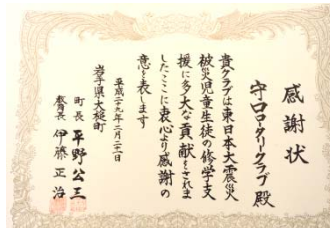 感謝状
守口ロータリークラブ殿
貴クラブは東日本大震災
被災児童生徒の修学支
援に多大な貢献をされま
したここに衷心より感謝の
意を表します
平成二十九年二月二十一日
岩手県大槌町
町長 平野公三
教育長 伊藤正治